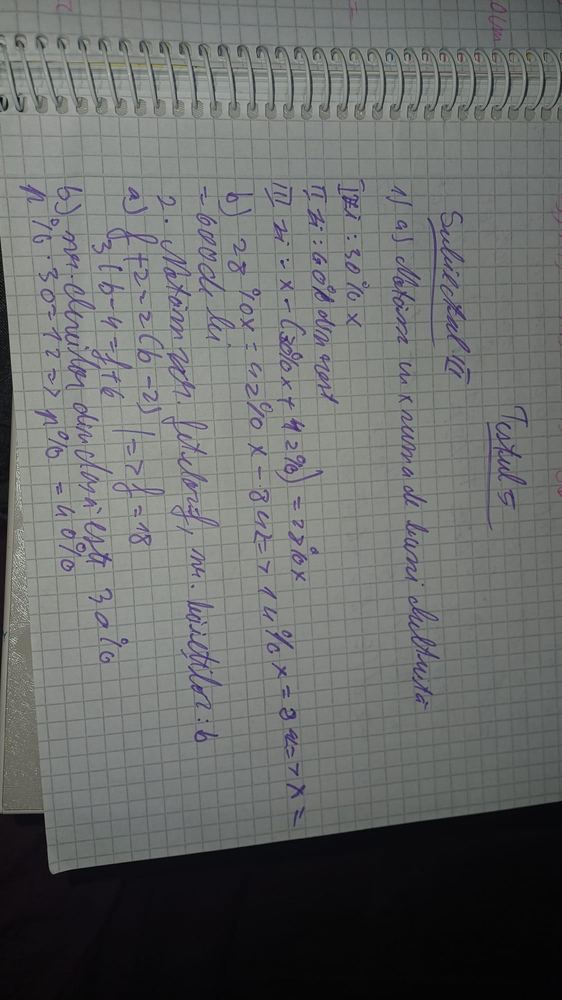 Testul 5
Subiectul III
1) a) Notăm cu x suma de bani cheltuită
I zi : 30% x
II zi : 60% din rest
III zi : x - (30%x + 42%) = 28%x
b) 28%x = 42%x - 84 => 14%x = 84 => x =
= 600 de lei
2. Notăm nr. fetelor: f, nr. băieților: b
a) f + 2 = 2(b - 2) | => f = 18
3(b - 4 = f + 6
b) nr. elevilor din clasă este 30%
p% · 30 = 12 => p% = 40%